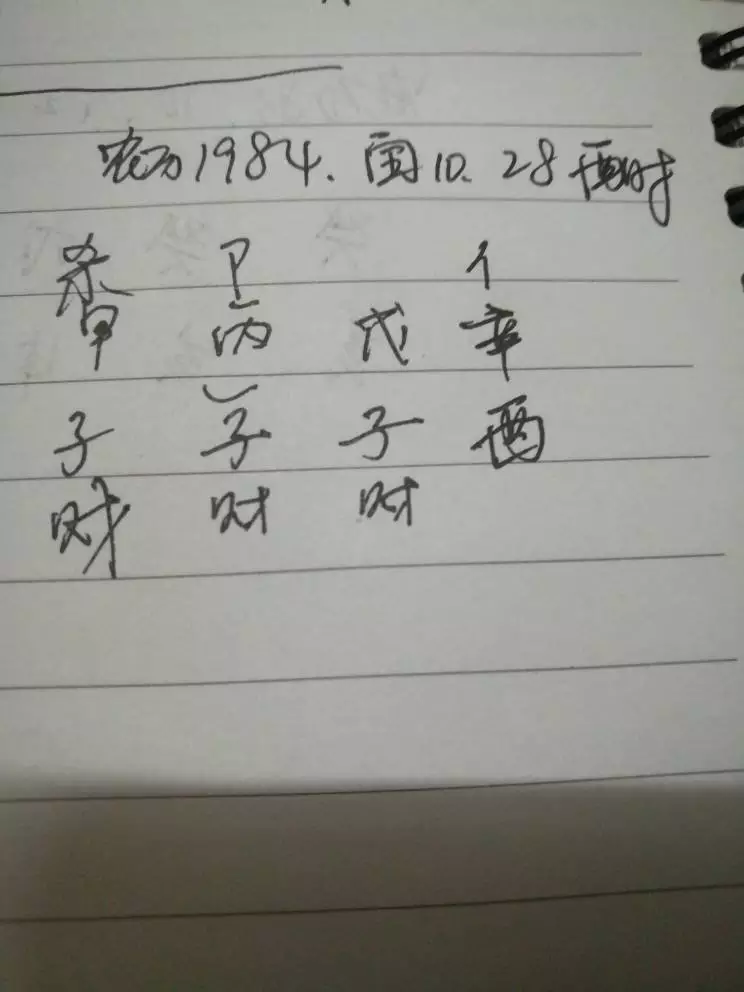 农历1984.闰10.28酉时
杀 卩 亻
甲 丙 戊 辛
子 子 子 酉
财 财 财